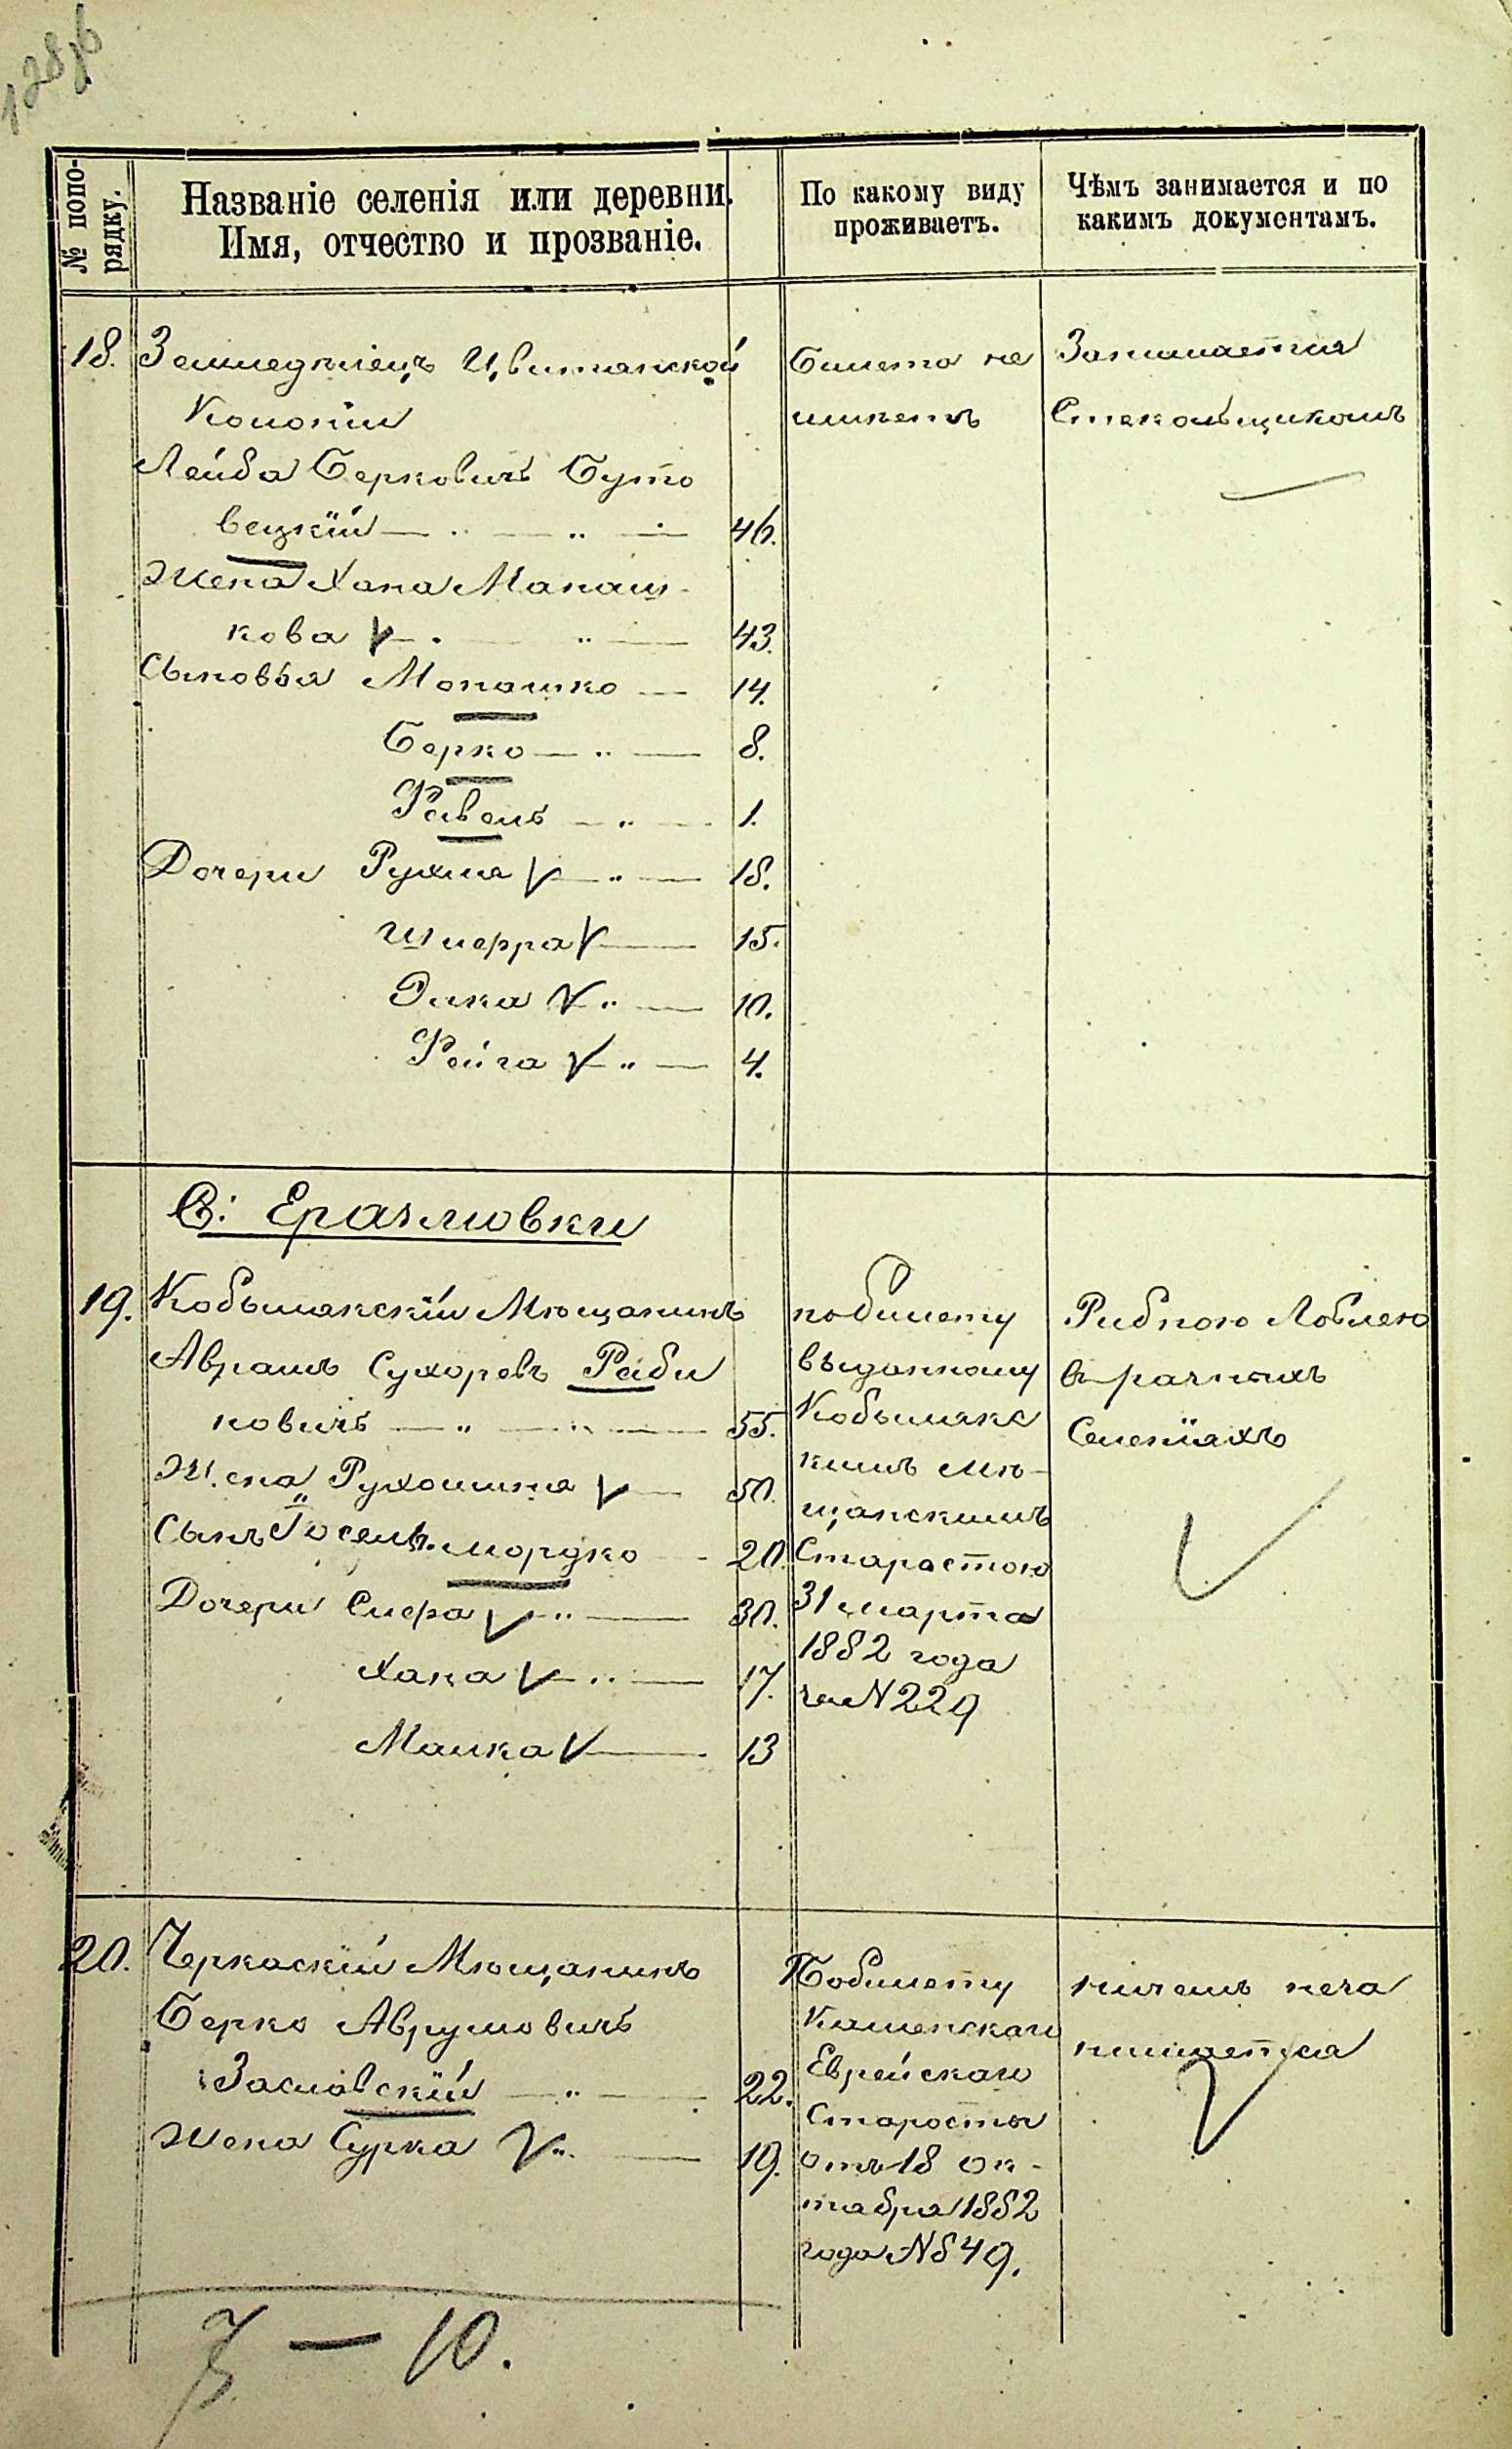 128об
№ попо-
рядку.
Названіе селенія или деревни.
Имя, отчество и прозваніе.
По какому виду
проживаетъ.
Чѣмъ занимается и по
какимъ документамъ.
18. Земледѣлецъ Цвитанской
Колоніи
Лейба Берковичъ Буто
вецкій — " — " — 46.
Жена Хана Манаш-
кова — " — 43.
Сыновья Монашко — 14.
Берко — " — 8.
Равель — " — 1.
Дочери Рухля — " — 18.
Шперра — 15.
Эика " — 10.
Рейза " — 4.
Билета не
имѣетъ
Занимается
Стекольщикомъ
С: Еразмовки
19. Кобыляксій Мѣщанинъ
Аврамъ Сухоревъ Раби
новичъ — " — " — 55.
Жена Рухомшна — 50.
Сынъ Іосель-мордко - 20.
Дочери Сифра " — 30.
Хана — " — 17.
Малка — 13
побилету
выданному
Кобылякс
кимъ мѣ-
щанскимъ
Старостою
31 марта
1882 года
за N 229
Рибною Ловлею
в разныхъ
Селеніяхъ
20. Черкаскій Мѣщанинъ
Берко Аврумовичъ
Заславскій — " — 22.
Жена Сурка " — 19.
Побилету
Каменскаго
Еврейскаго
Старосты
отъ 18 ок-
тября 1882
года N 849.
ничемъ неза
нимается
7 — 10.